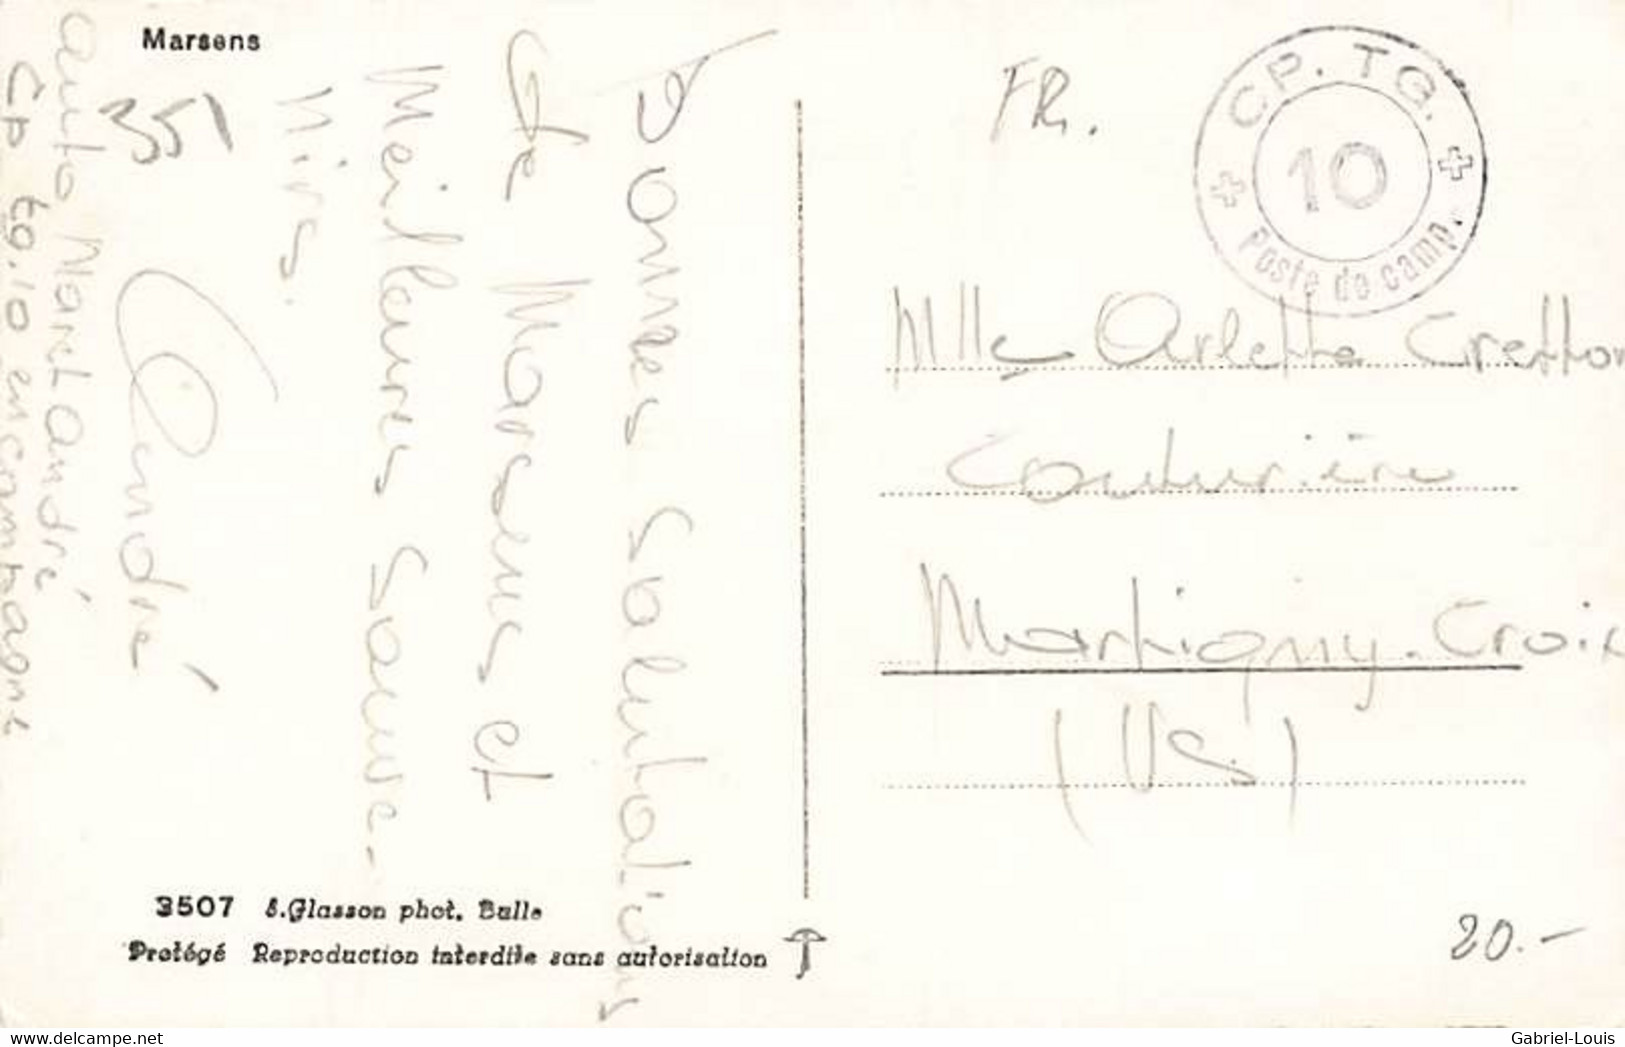 Marsens
Bonnes Salutations
de Marsens et
Meilleures Souve-
nirs.
André
35
Mort André
Cp tg. 10 en campagne
FR.
CP. TG.
10
Poste de camp.
Mlle Arlette Cretton
Couturière
Martigny-Croix
(VS)
20.-
3507 S. Glasson phot. Bulle
Protégé Reproduction interdite sans autorisation
Gabriel-Louis